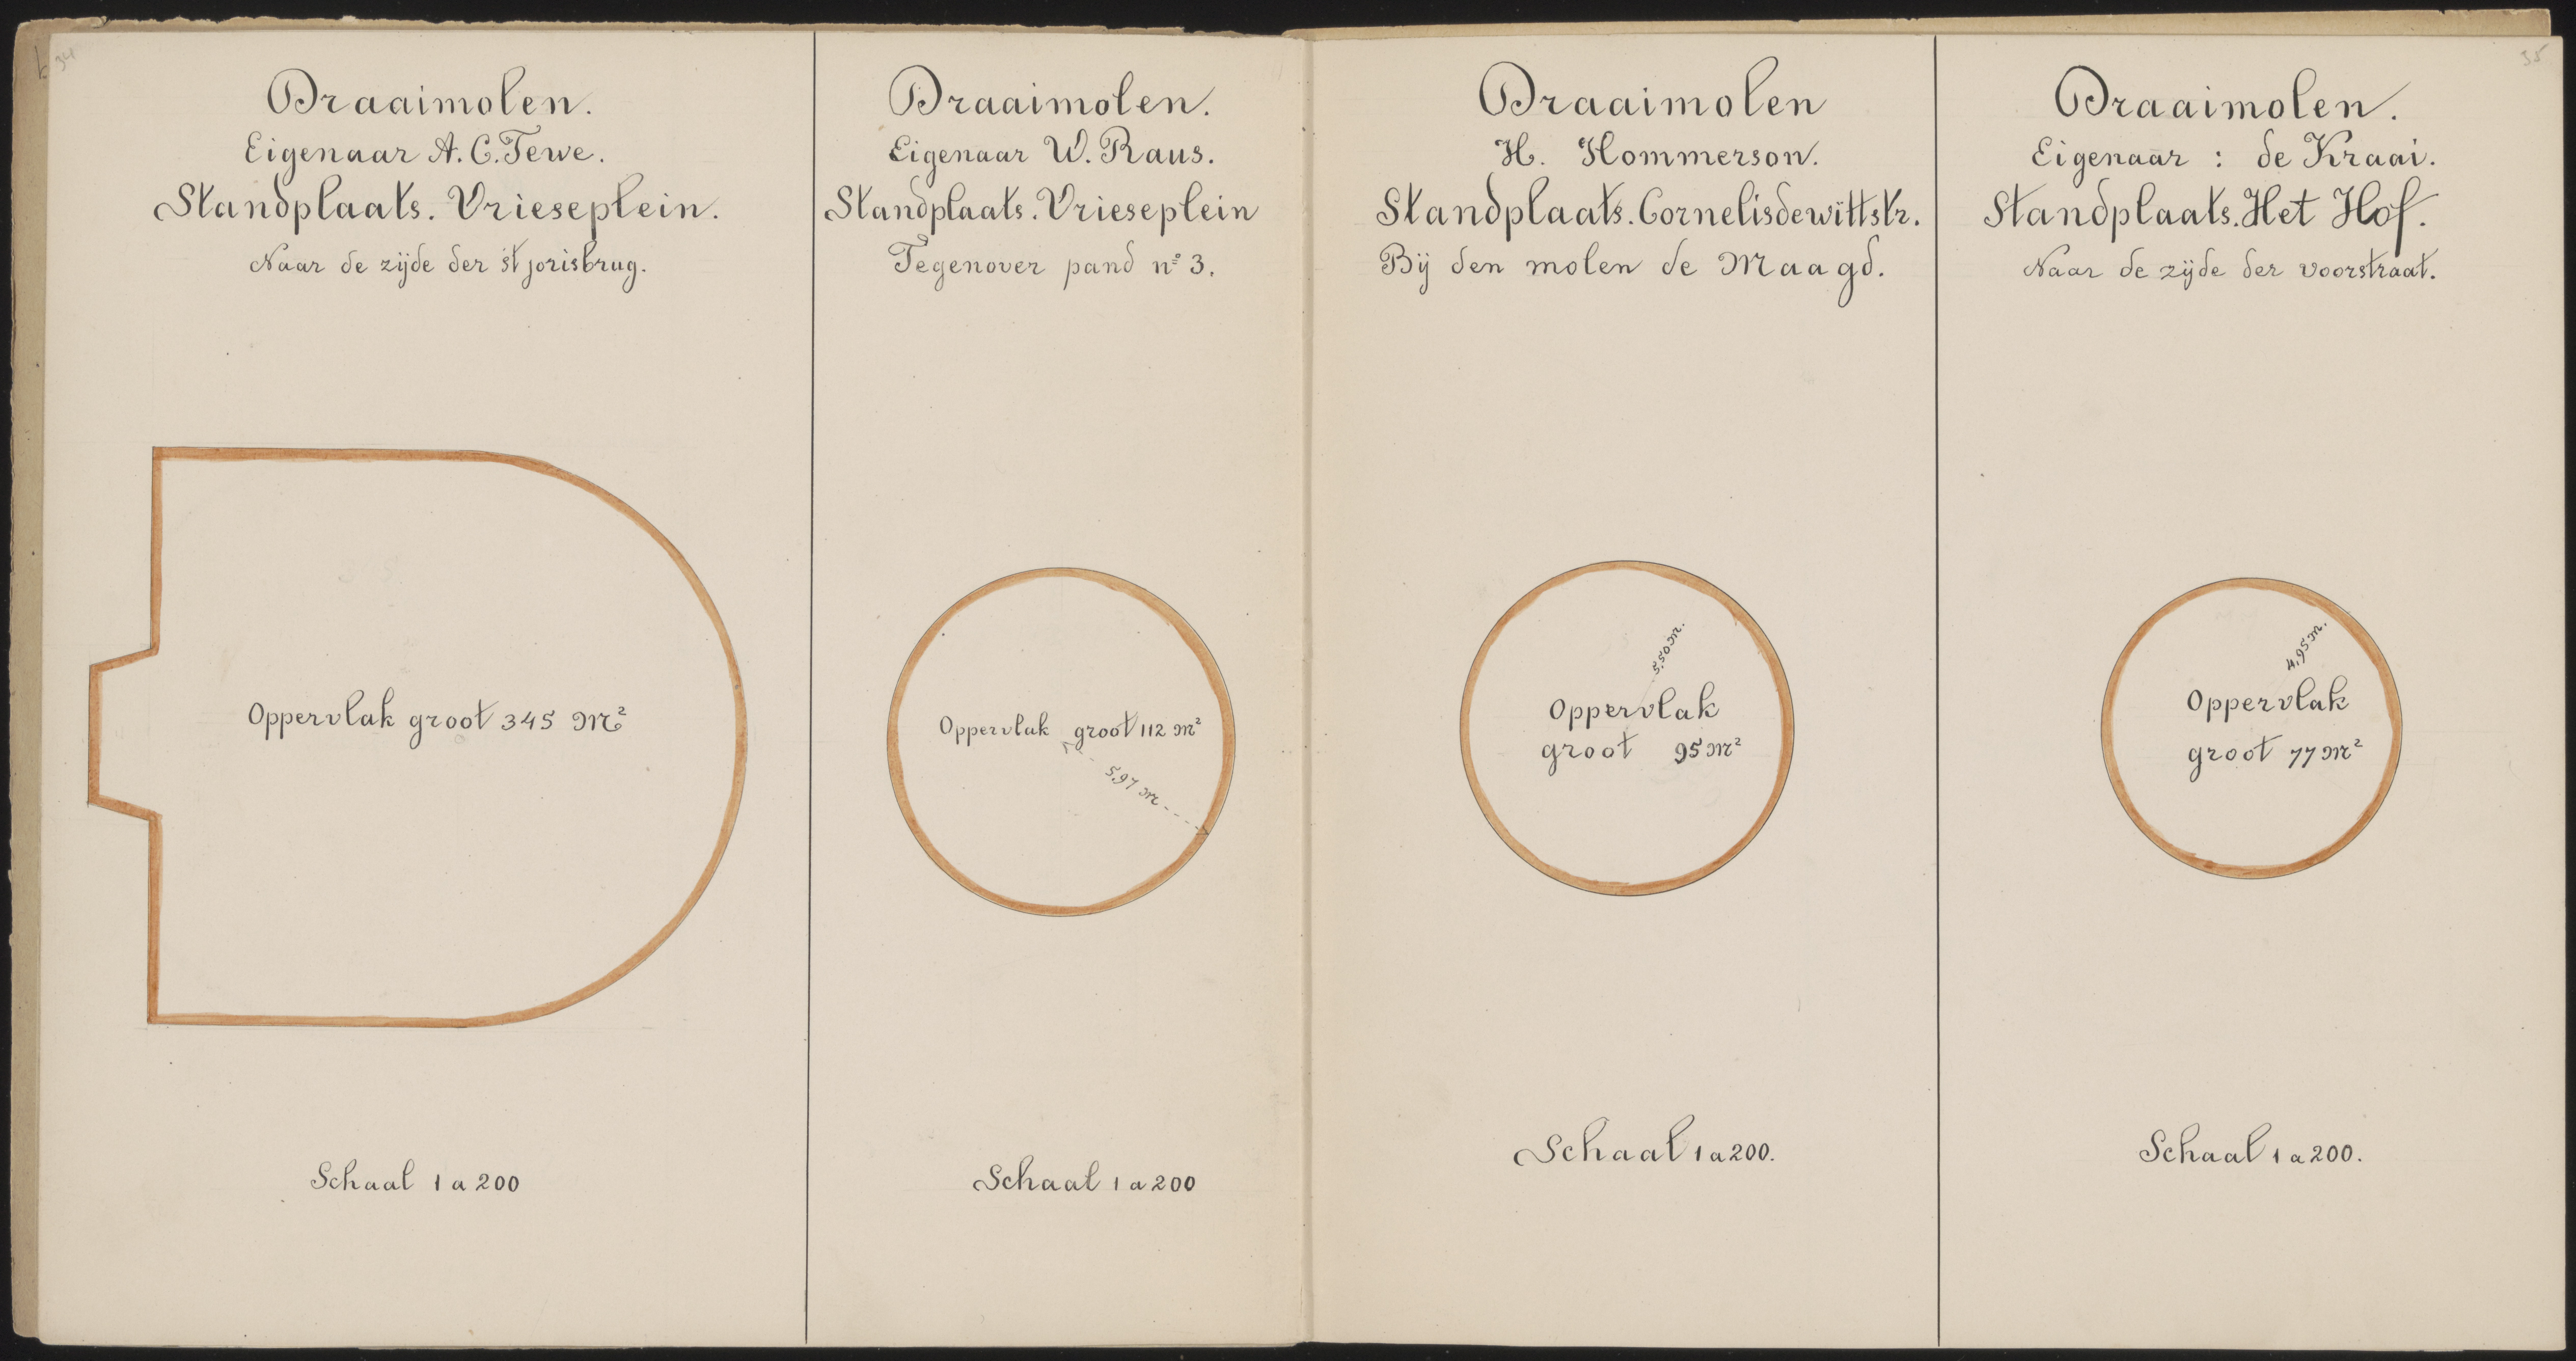 34
Draaimolen.
Eigenaar A. C. Tewe.
Standplaats. Vrieseplein.
Naar de zijde der st jorisbrug.
Oppervlak groot 345 M²
Schaal 1 a 200
Draaimolen.
Eigenaar W. Raus.
Standplaats. Vrieseplein
Tegenover pand nº 3.
Oppervlak groot 112 M²
5,97 M
Schaal 1 a 200
Draaimolen
H. Hommerson.
Standplaats. Cornelisdewittstr.
Bij den molen de Maagd.
5,50 M.
Oppervlak
groot 95 M²
Schaal 1 a 200.
35
Draaimolen.
Eigenaar : de Kraai.
Standplaats. Het Hof.
Naar de zijde der voorstraat.
4,95 M.
Oppervlak
groot 77 M²
Schaal 1 a 200.